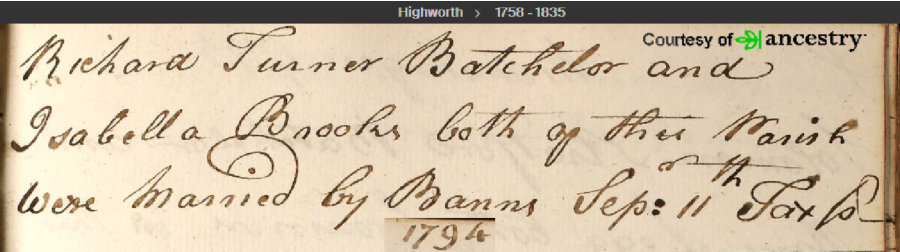 Highworth > 1758 - 1835
Courtesy of ancestry
Richard Turner Batchelor and
Isabella Brooks both of this Parish
were Married by Banns Sep: 11th Tax pd
1794